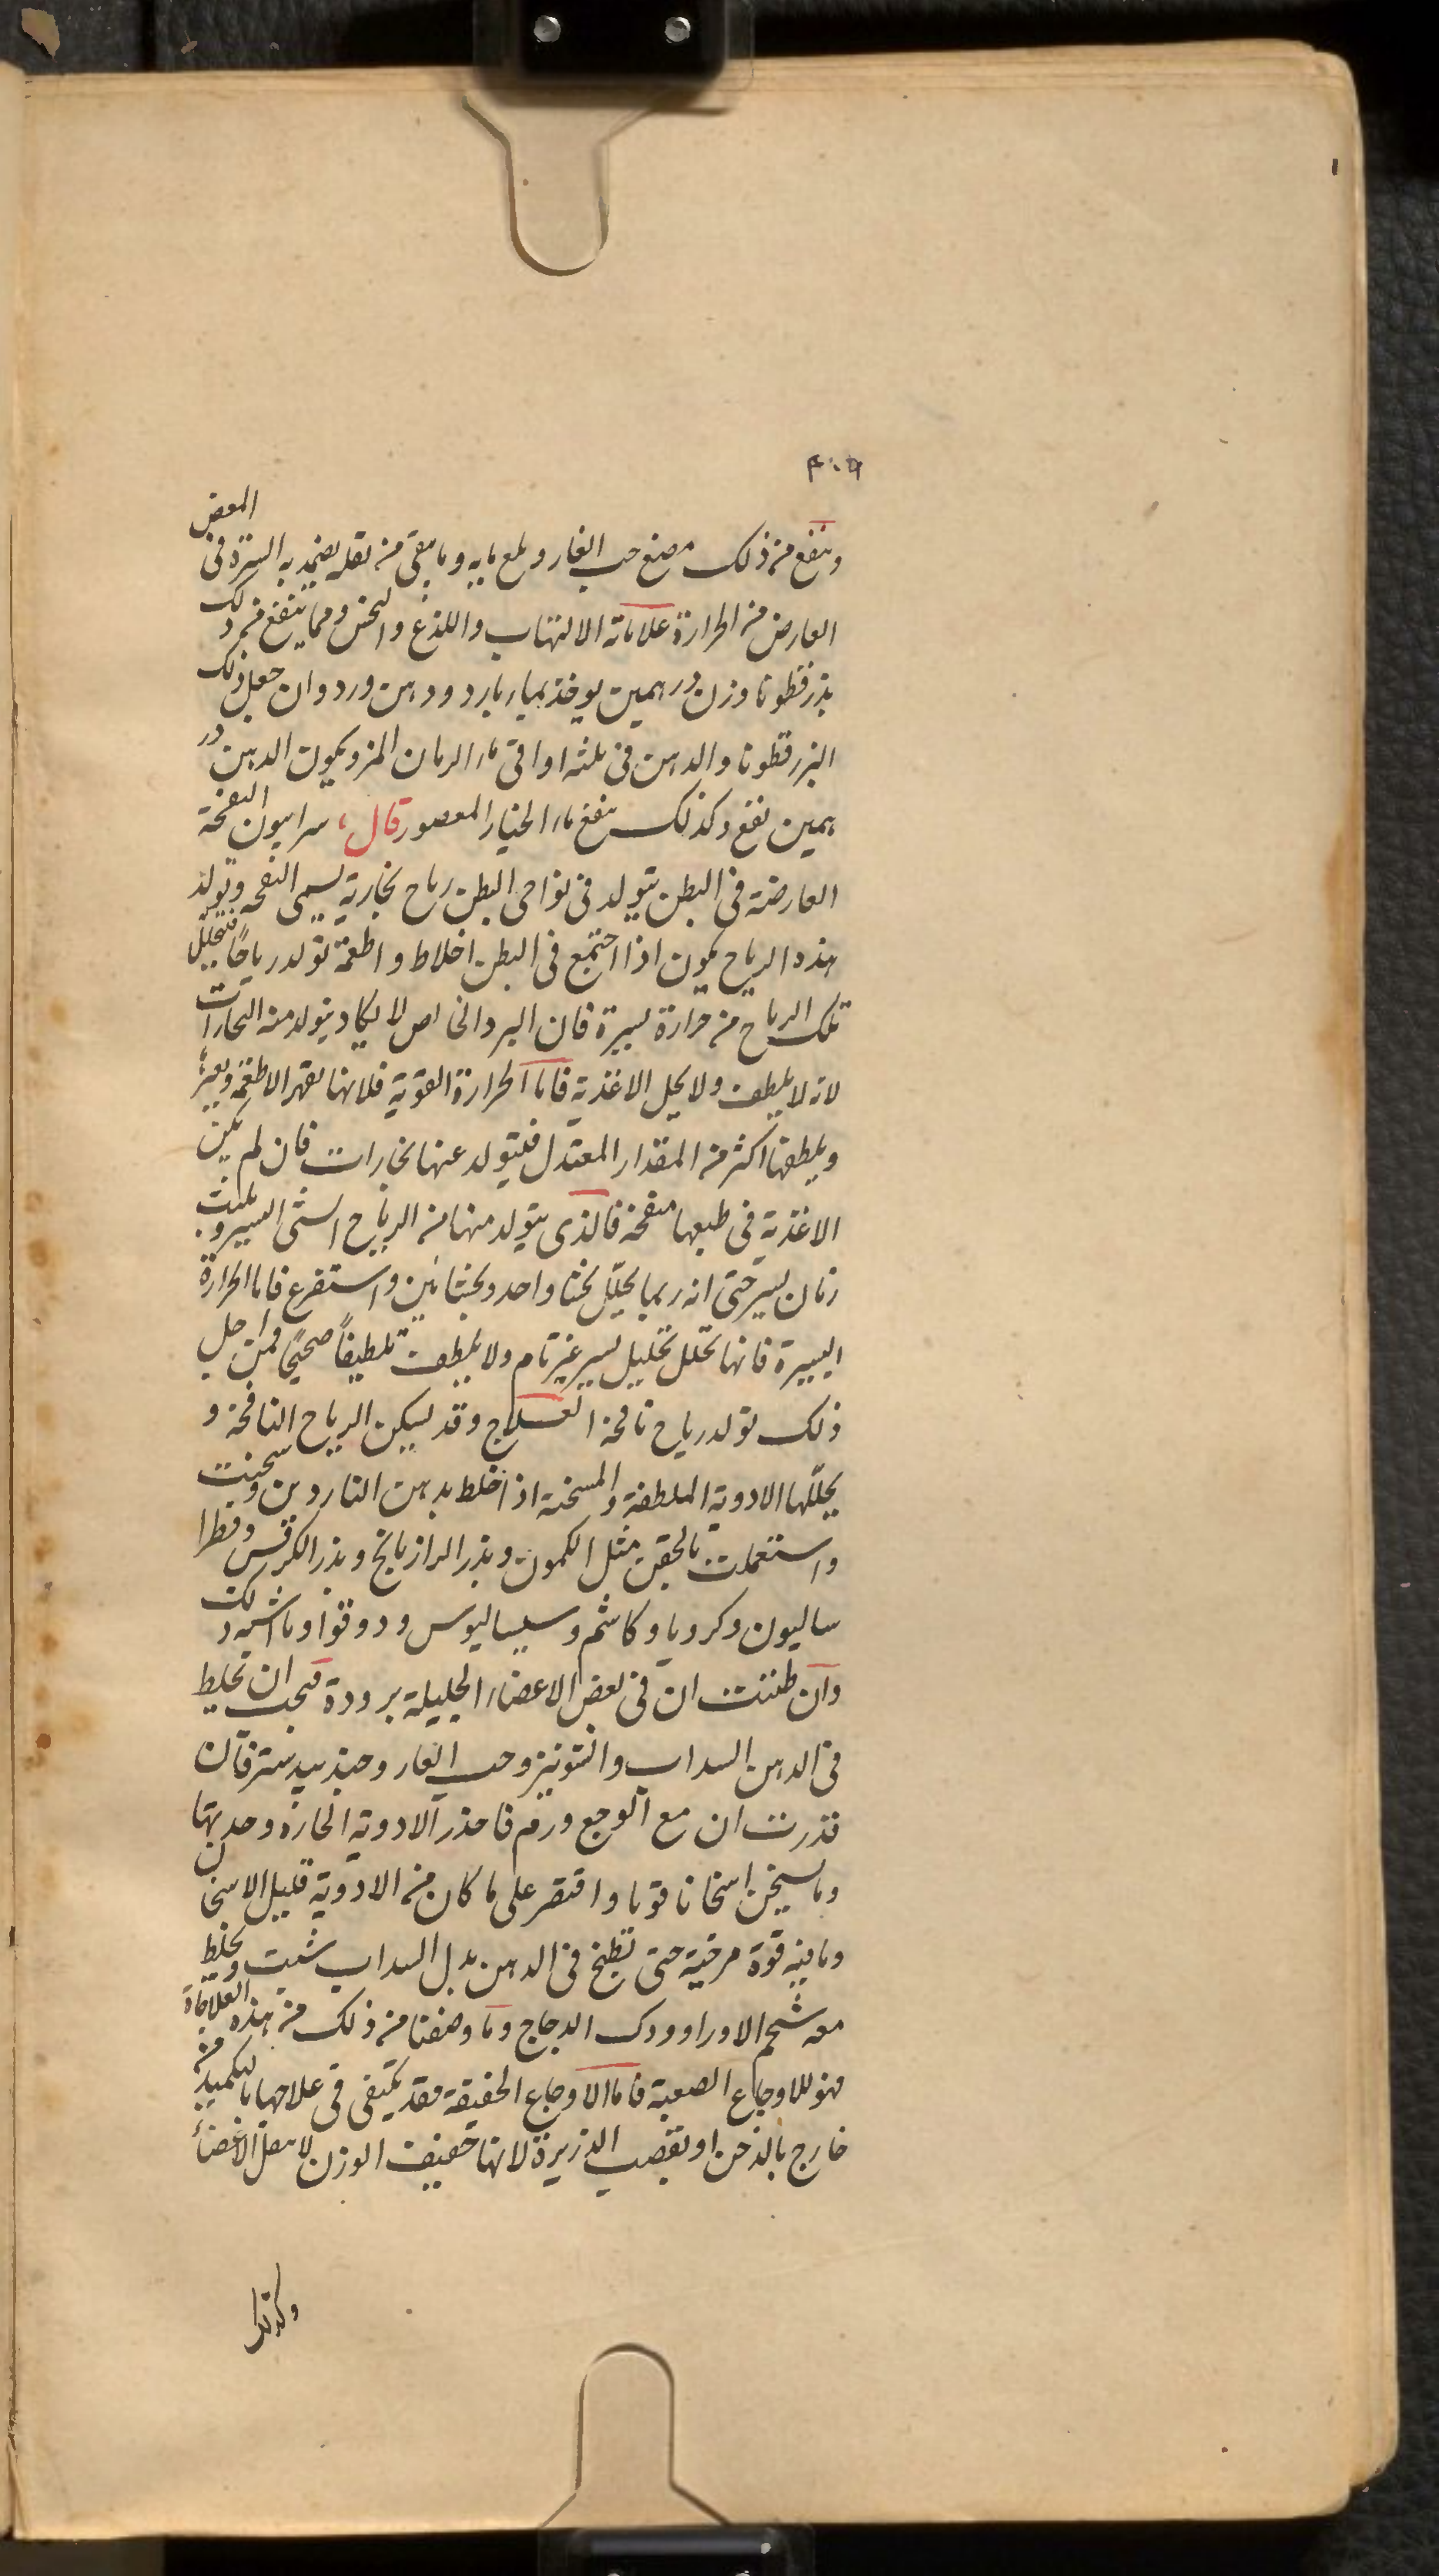 ۴۰۹
وينفع من ذلك مضغ حب الغار وبلع مايه وما بقى من ثقله يضمد به السرة فى المغص
العارض من الحرارة علاماته الالتهاب واللذع والنخس ومما ينفع من ذلك
بزر قطونا وزن درهمين يوخذ بماء بارد ودهن ورد وان جعل ذلك
البزر قطونا والدهن فى ثلثه اواقى ماء الرمان المز ويكون الدهن در
همين نفع وكذلك ينفع ماء الخيار المعصور قال سرابيون النفخة
العارضة فى البطن يتولد فى نواحى البطن رياح بخارية يسمى النفخه وتولد
هذه الرياح يكون اذا اجتمع فى البطن اخلاط واطعمة تولد رياحًا فتحلل
تلك الرياح من حرارة يسيرة فان البرد الخالص لا يكاد يتولد منه البخارات
لانه لا يلطف ولا يحل الاغذية فاما الحرارة القوية فلانها تقهر الاطعمة
ويلطفها اكثر من المقدار المعتدل فيتولد عنها بخارات فان لم يكن
الاغذية فى طبعها منفخة فالذى يتولد منها من الرياح الشئ اليسير ويلبث
زمان يسير حتى انه ربما يحلل بجشا واحد وبجشائين واستفرغ فاما الحرارة
اليسيرة فانها تحلل تحليل يسير غير تام ولا يلطف تلطيفًا صحيحًا فمن اجل
ذلك تولد رياح نافخة العلاج وقد يسكن الرياح النافخة و
يحللها الادوية الملطفة والمسخنة اذا خلط بدهن الناردين وسخنت
واستعملت بالحقن مثل الكمون وبذر الرازيانج وبذر الكرفس وفطرا
ساليون وكرويا وكاشم وسيساليوس ودوقوا وما اشبه ذلك
وان ظننت ان فى بعض الاعضاء الجليلة برودة فيجب ان تخلط
فى الدهن السداب والشونيز وحب الغار وجندبيدستر فان
قدرت ان مع الوجع ورم فاحذر الادوية الحارة وحدتها
وما يسخن اسخانا قويا واقتصر على ما كان من الادوية قليل الاسخان
وما فيه قوة مرخية حتى تطبخ فى الدهن بدل السداب شبت ويخلط
معه شحم الاوز او ودك الدجاج وما وصفنا من ذلك من هذه العلاجات
فهو للاوجاع الصعبة فاما الاوجاع الخفيفة فقد يكتفى فى علاجها بالتكميد من
خارج بالدخن او بقصب الذريرة لانها خفيف الوزن لا يثقل الاعضاء